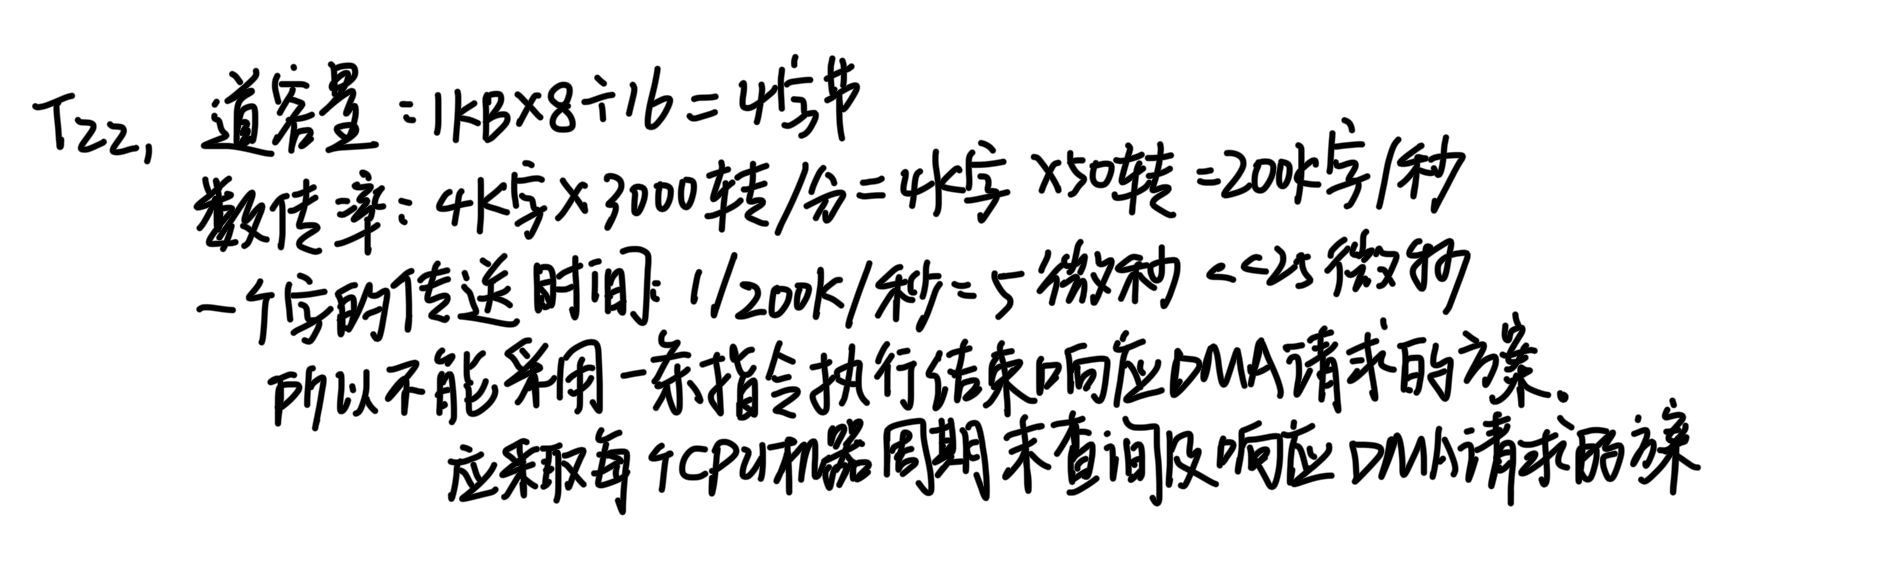 T22, 道容量:1KB×8÷16=4字节
数传率:4K字×3000转/分=4K字×50转=200K字/秒
一个字的传送时间:1/200K/秒=5微秒<<25微秒
所以不能采用一条指令执行结束响应DMA请求的方案.
应采取每个CPU机器周期末查询及响应DMA请求的方案